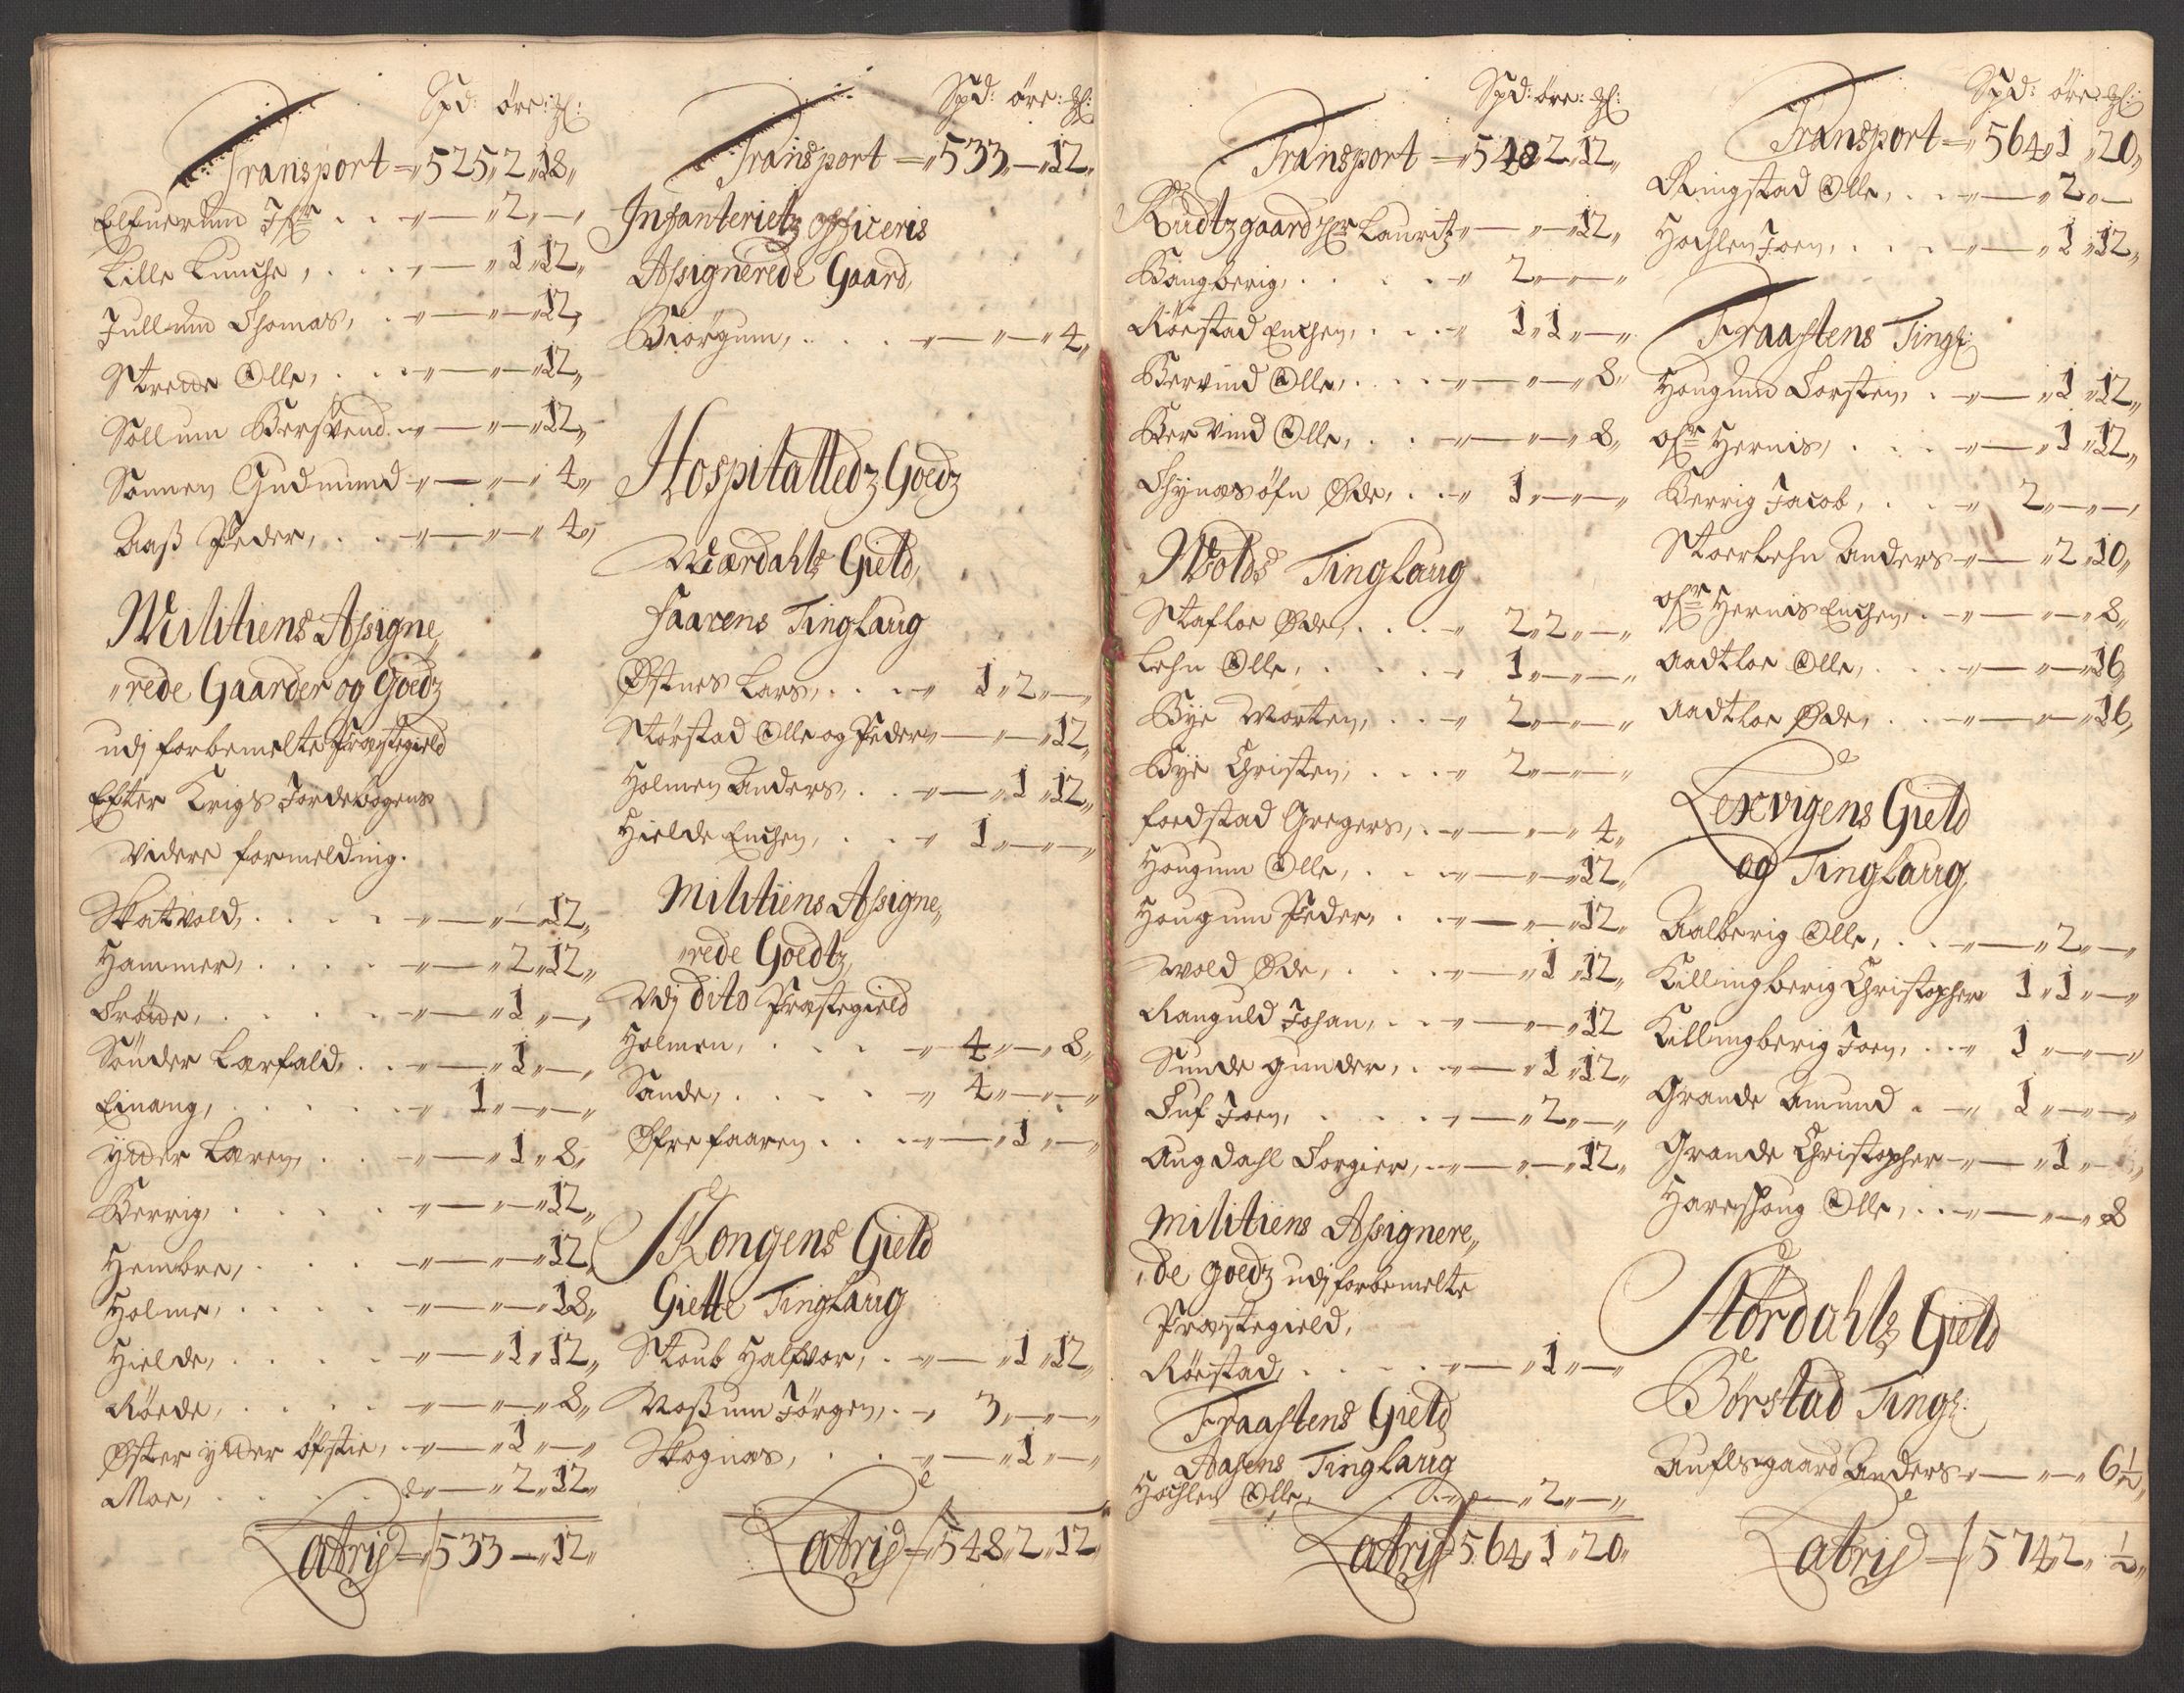 Spd: öre: ꝣ:
Transport = 525„ 2„ 18„
Elfuerum Jfr . . „ — „ 2„ —„
Lille Lunche, . . . „ — „ 1„ 12„
Jullum Thomas, . „ — „ — „ 12„
Streede Olle, . . . „ — „ — „ 12„
Sollum Berswend . „ — „ — „ 12„
Sonnen Gudmund „ — „ — „ 4„
Aaß Peder, . . „ — „ — „ 4„
Militiens Assigne„
„rede Gaarder og Goedz
udj forbemelte Præstegield
Efter Krigs Jordebogens
Videre formelding.
Skatvold, . . . . „ — „ — „ 12„
Hammer, . . . . „ — „ 2„ 12„
Fröde, . . . . „ — „ 1„ —„
Sönder Larfald, . . „ — „ 1„ —„
Einang, . . . . . „ 1„ —„ —„
Yder Laren, . . „ — „ 1„ 8„
Berrig, . . . . „ — „ — „ 12„
Hembre, . . . „ — „ — „ 12„
Holme, . . . . „ — „ — „ 18„
Hielde, . . . . „ — „ 1„ 12„
Röede, . . . . „ — „ — „ 8„
Öster ytter öfstie, . „ — „ 1„ —„
Moe, . . . . . „ — „ 2„ 12„
Latris = 533 — „ 12„
Spd: öre: ꝣ:
Transport = „ 533„ — „ 12„
Infanterietz Officeris
Assignerede Gaard,
Biörgum, . . . . „ — „ — „ 4„
Hospitalledz Goedz
Wærdahls Gield,
Faarens Tinglaug
Östnes Lars, . . . „ 1„ 2„ —„
Störstad Olle og Peder „ — „ — „ 12„
Holmen Anders, . . „ — „ 1„ 12„
Hielde Enchen, . . „ 1„ —„ —„
Militiens Assigne„
„rede Goedtz,
Udj dito Præstegield
Holmen, . . . . „ 4„ —„ 8„
Sande, . . . . . „ 4„ —„ —„
Öfre faaren . . . „ — „ 1„ —„
Skongens Gield
Giette Tinglaug
Stoub Halfwor, . „ — „ 1„ 12„
Moßum Jörgen, . „ 3„ —„ —„
Skognæs, . . . „ — „ 1„ —„
Latris = „ 548„ 2„ 12„
Spd: öre: ꝣ:
Transport = „ 548„ 2„ 12„
Rudtzgaard Hr Lauritz „ — „ — „ 12„
Bangberig, . . . . „ 2„ —„ —„
Röestad Enchen, . . . „ 1„ 1„ —„
Bervind Olle, . . . „ — „ — „ 8„
Bervind Olle, . . „ — „ — „ 8„
Thynæs öfn Öde, . . „ 1„ —„ —„
Wolds Tinglaug
Stafloe Öde, . . . „ 2„ 2„ —„
Lehn Olle, . . . . „ 1„ —„ —„
Bye Morten, . . . „ 2„ —„ —„
Bye Christen, . . . „ 2„ —„ —„
Foedstad Gregers, . „ — „ — „ 4„
Hougum Olle, . . „ — „ — „ 12„
Hougum Peder, . . „ — „ — „ 12„
Wold Öde, . . . . „ — „ 1„ 12„
Ranguld Johan, . . „ — „ — „ 12
Sunde Gunder, . . „ — „ 1„ 12„
Tuf Joen, . . . . „ — „ 2„ —„
Augdahl Torgier, . „ — „ — „ 12„
Militiens Assignere„
„de goedz udj forbemelte
Præstegield,
Röestad, . . . . . „ — „ 1„ —„
Fraastens Gield
Aasens Tinglaug
Hochlen Olle, . . . „ — „ 2„ —„
Latris 564„ 1„ 20„
Spd: öre: ꝣ:
Transport = „ 564„ 1„ 20„
Ringstad Olle, . . „ — „ 2„ —
Hochlen Joen, . . . „ — „ 1„ 12„
Fraastens Tingl:
Hougum Torsten, . „ — „ 1„ 12„
ofr Hernis, . . . „ — „ 1„ 12„
Berrig Jacob, . . „ 2„ —„ —„
Stoerlehn Anders „ — „ 2„ 10„
ofr Hernis Enchen, . „ — „ — „ 8„
Aadtloe Olle, . . . „ — „ — „ 16„
Aadtloe Öde, . . . „ — „ — „ 16„
Lexvigens Gield
og Tinglaug,
Aalberig Olle, . . „ — „ 2„ —„
Killingberig Christopher 1„ 1„ —„
Killingberig Joen, . . „ 1„ —„ —„
Grande Amund . „ 1„ —„ —„
Grande Christopher „ — „ 1„ —„
Hareshoug Olle, . . „ — „ — „ 8
Stördahls Gield
Börstad Tingl:
Auflsgaard Anders „ — „ — „ 6½„
Latris = 574„ 2„ ½„